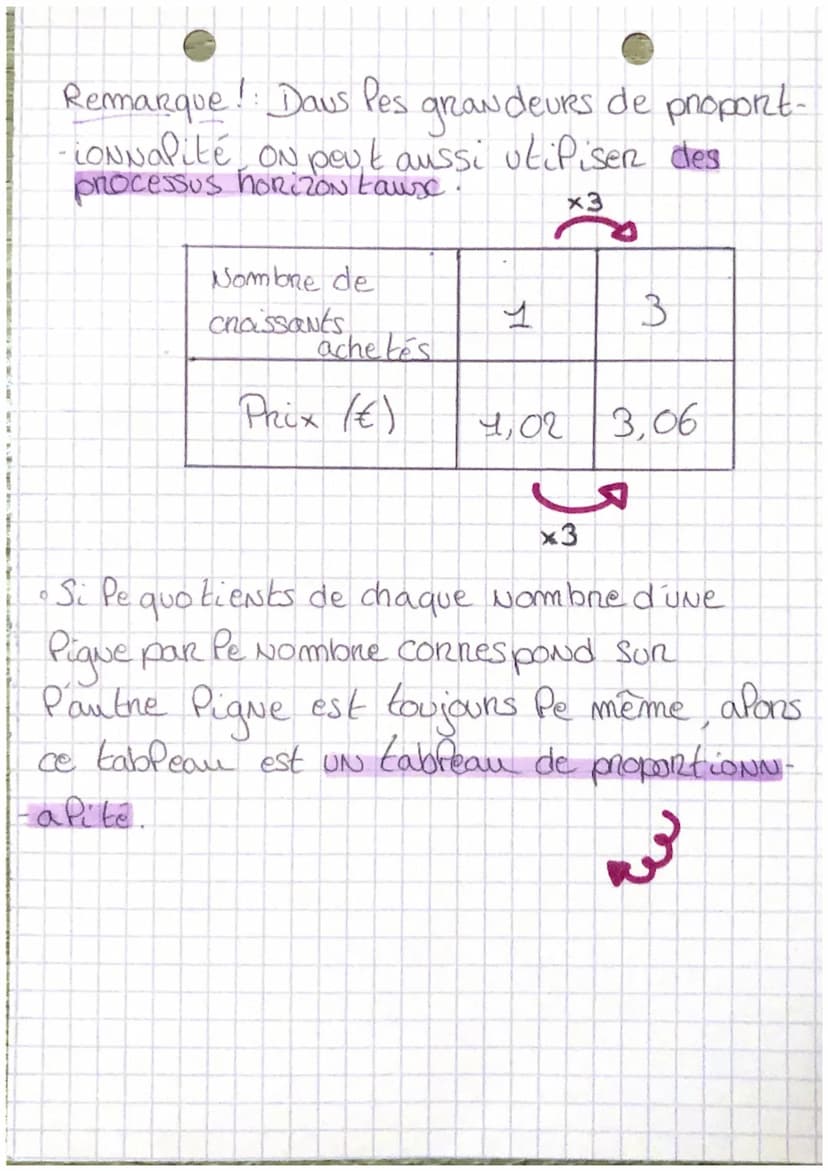 Remarque!: Dans les grandeurs de proport-
-ionnalité, on peut aussi utiliser des
processus horizontaux.
x3
Nombre de
croissants
achetés
1
3
Prix (€)
1,02
3,06
x3
• Si le quotients de chaque nombre d'une
ligne par le nombre correspond sur
l'autre ligne est toujours le même, alors
ce tableau est un tableau de proportionn-
-alité.